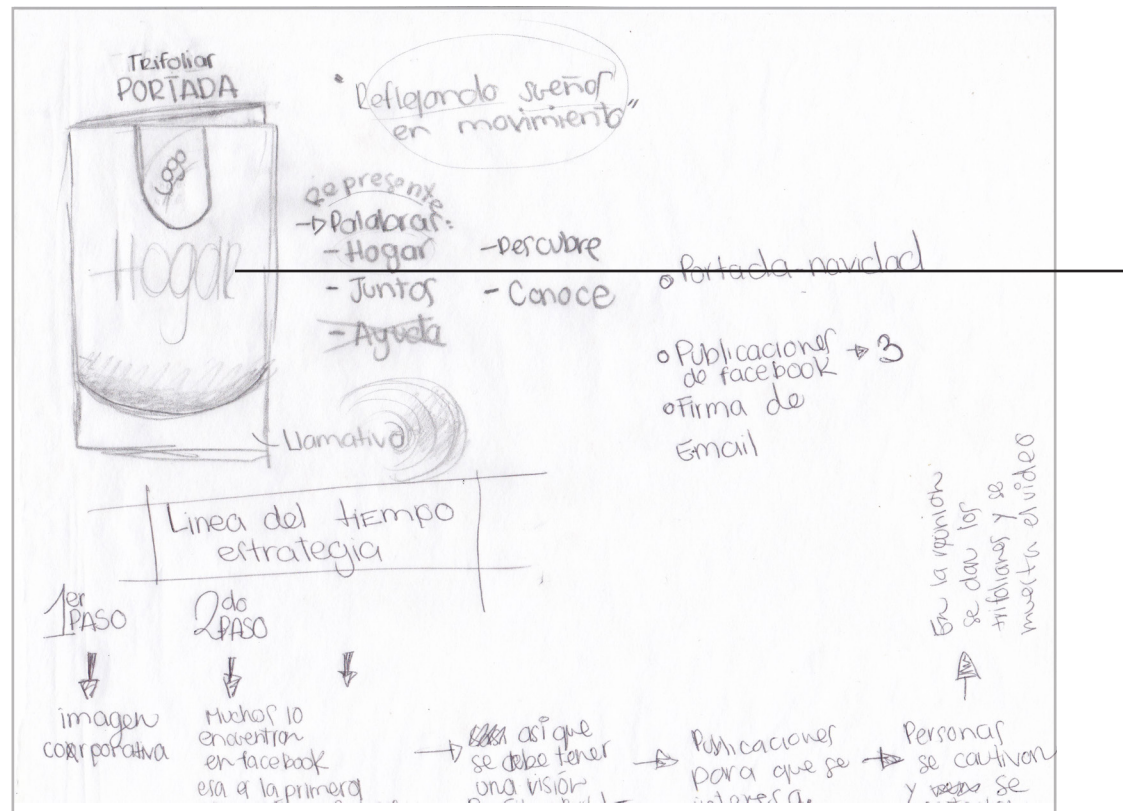 Trifoliar
PORTADA
Logo
Hogar
"Reflejando sueños
en movimiento"
Represente
→Palabras:
- Hogar
- Juntos
- Ayuda
- Descubre
- Conoce
Llamativo
Portada-navidad
Publicaciones → 3
de facebook
Firma de
Email
Linea del tiempo
estrategia
1er
PASO
2do
PASO
imagen
corporativa
Muchos lo
encuentran
en facebook
esa es la primera
asi que
se debe tener
una visión
Publicaciones
para que se
interesa
Personas
se cautivan
y se
En la reunión
se dan los
trifoliares y se
muestra el video